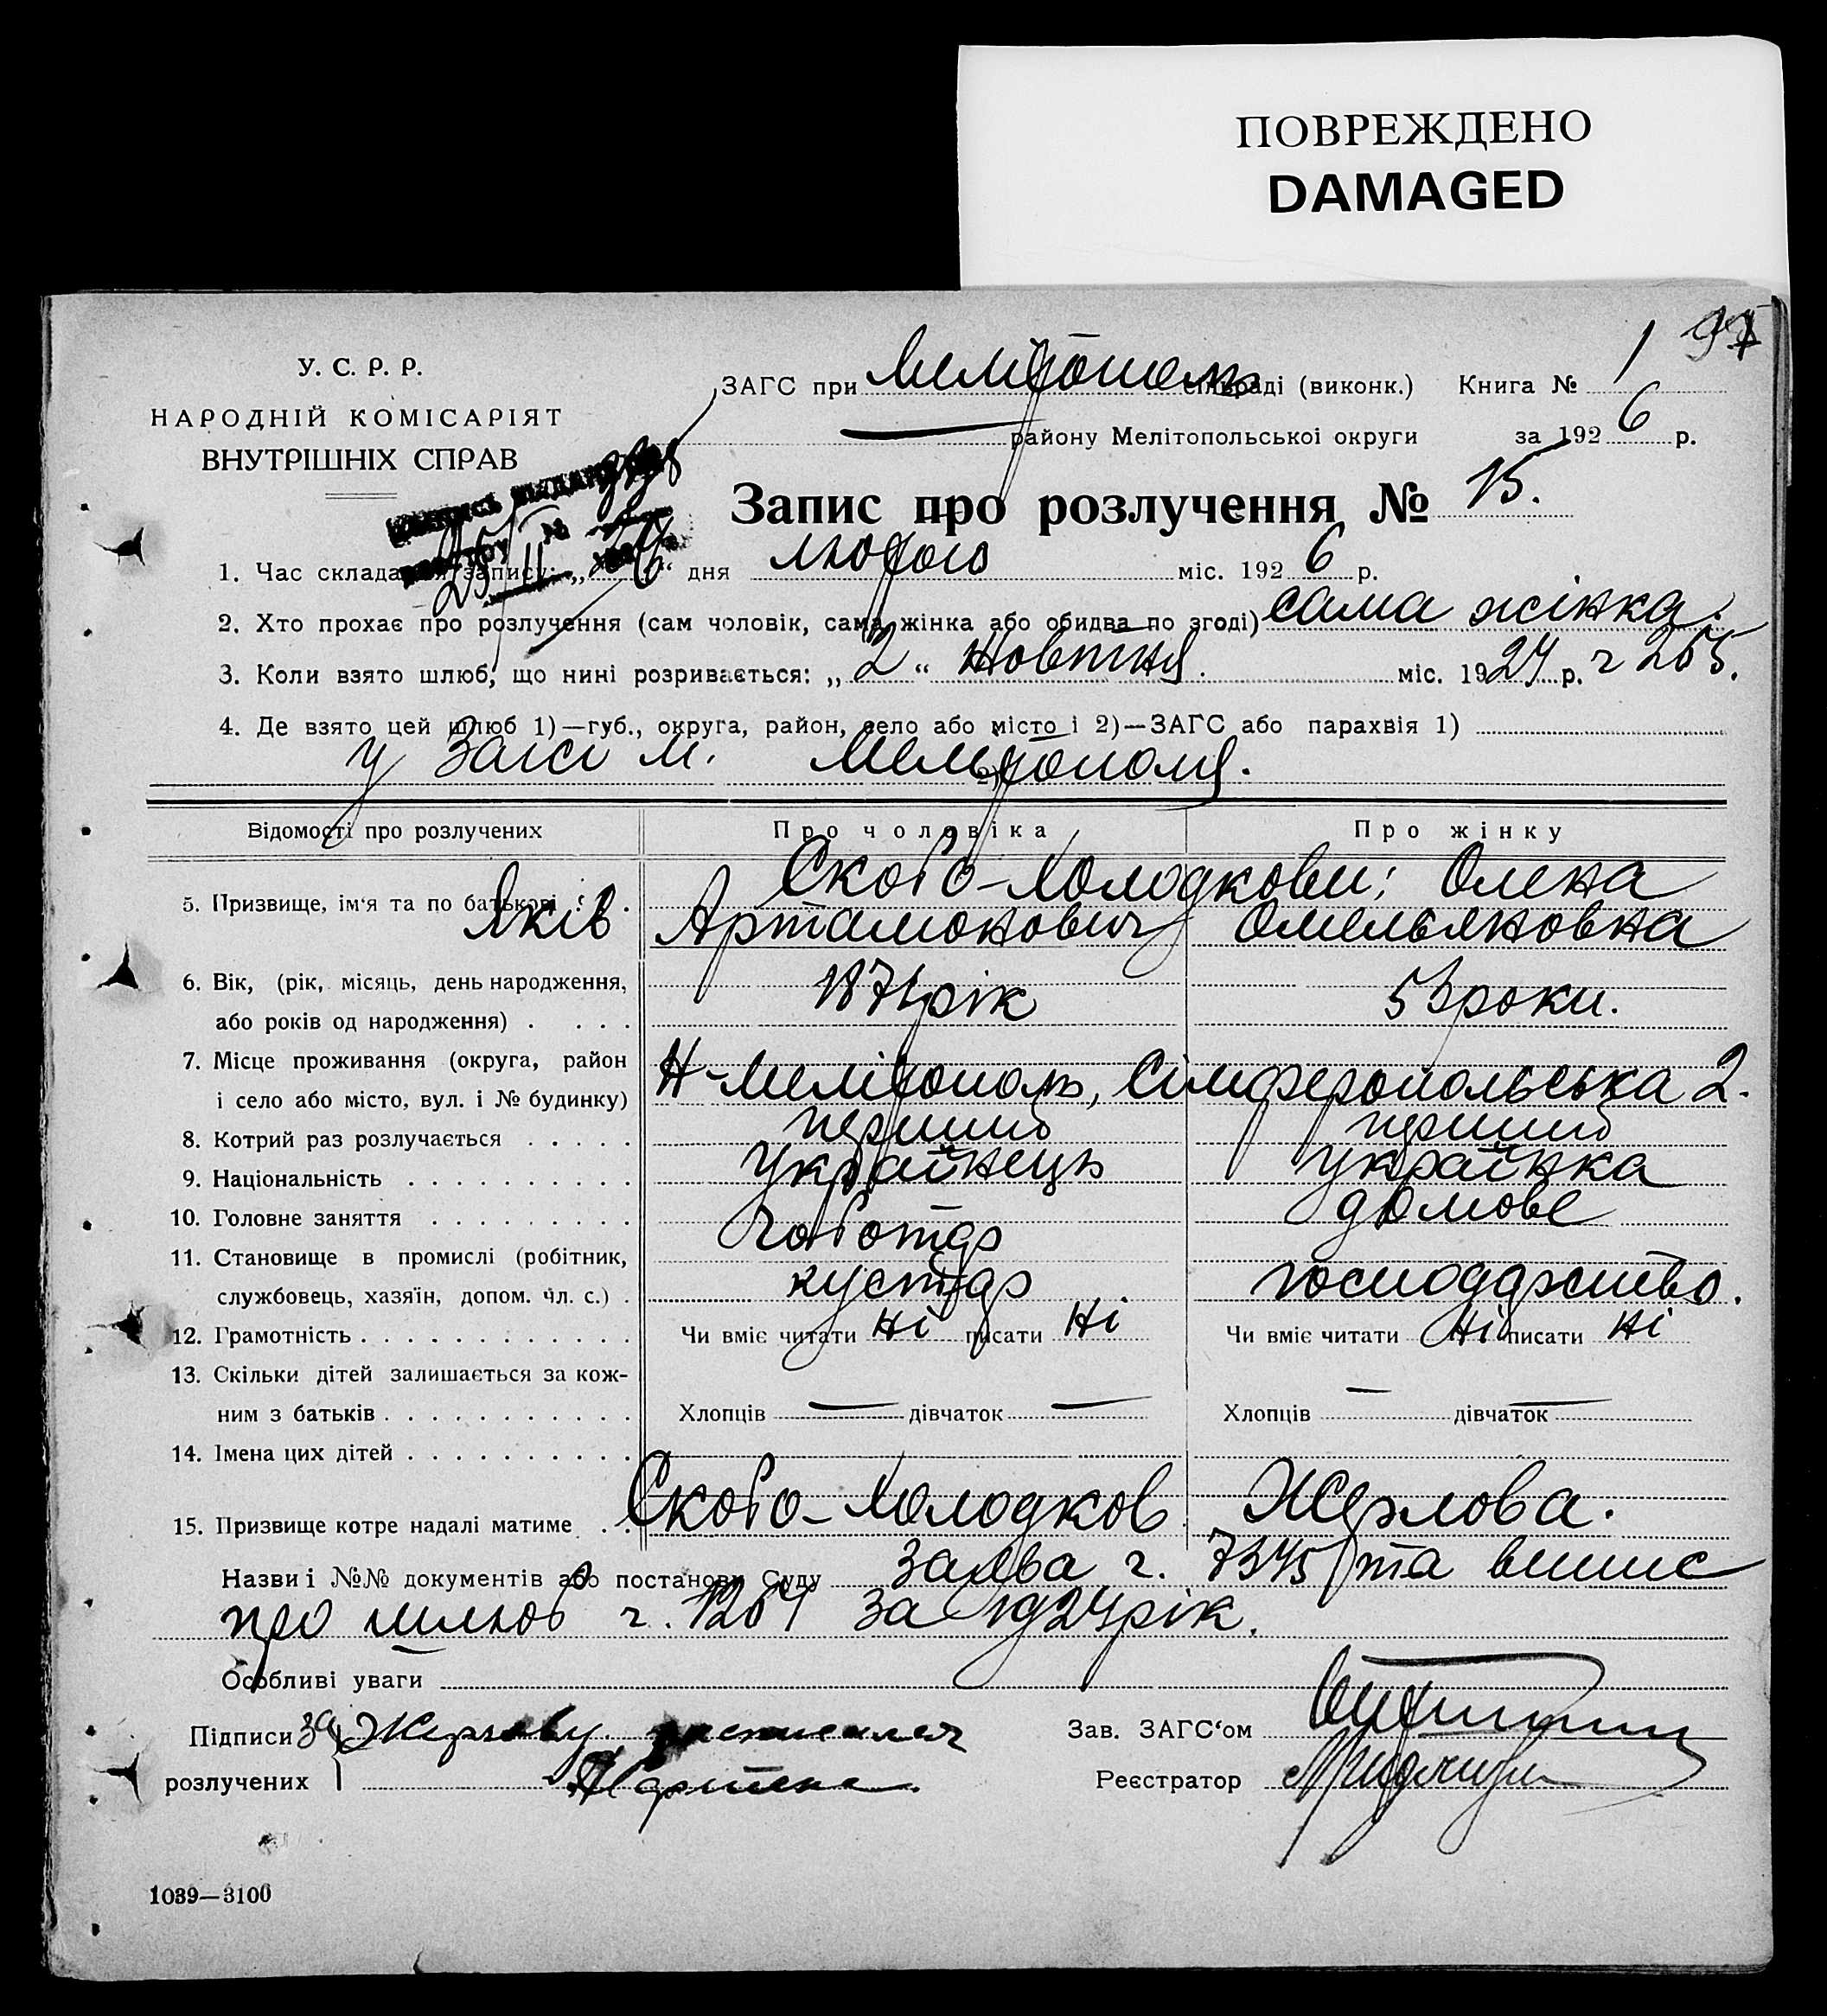 ПОВРЕЖДЕНО
DAMAGED
У. С. Р. Р.
НАРОДНІЙ КОМІСАРІЯТ
ВНУТРІШНІХ СПРАВ
ЗАГС при Мелітополь сільраді (виконк.) Книга № 1
району Мелітопольської округи за 1926 р.
Запис про розлучення № 15.
1. Час складання запису: „ “ дня лютого міс. 1926 р.
2. Хто прохає про розлучення (сам чоловік, сама жінка або обидва по згоді) сама жінка.
3. Коли взято шлюб, що нині розривається: „2“ жовтня. міс. 1924 р.
4. Де взято цей шлюб 1)—губ., округа, район, село або місто і 2)—ЗАГС або парахвія 1)
у Загсі м. Мелітополя.
Відомості про розлучених Про чоловіка Про жінку
5. Призвище, ім‘я та по батькові Скобо-Холодкови: Олена
Яків Артамонович Омельяновна
6. Вік, (рік, місяць, день народження,
або років од народження) 1871 рік 53 роки.
7. Місце проживання (округа, район
і село або місто, вул. і № будинку) Н-Мелітополь, Сімферопольська 2.
8. Котрий раз розлучається перший перший
9. Національність українець українка
10. Головне заняття чоботар домове
11. Становище в промислі (робітник,
службовець, хазяїн, допом. чл. с.) кустар господарство.
12. Грамотність Чи вміє читати ні писати ні Чи вміє читати ні писати ні
13. Скільки дітей залишається за кож-
ним з батьків Хлопців — дівчаток — Хлопців — дівчаток —
14. Імена цих дітей
15. Призвище котре надалі матиме Скобо-Холодков Жерлова.
Назви і №№ документів або постанови Суду заява ч. 7345 та випис
про шлюб ч. 1264 за 1924 рік.
Особливі уваги
Підписи за Жерлову расписался Зав. ЗАГС‘ом
розлучених Реєстратор
1039—3100